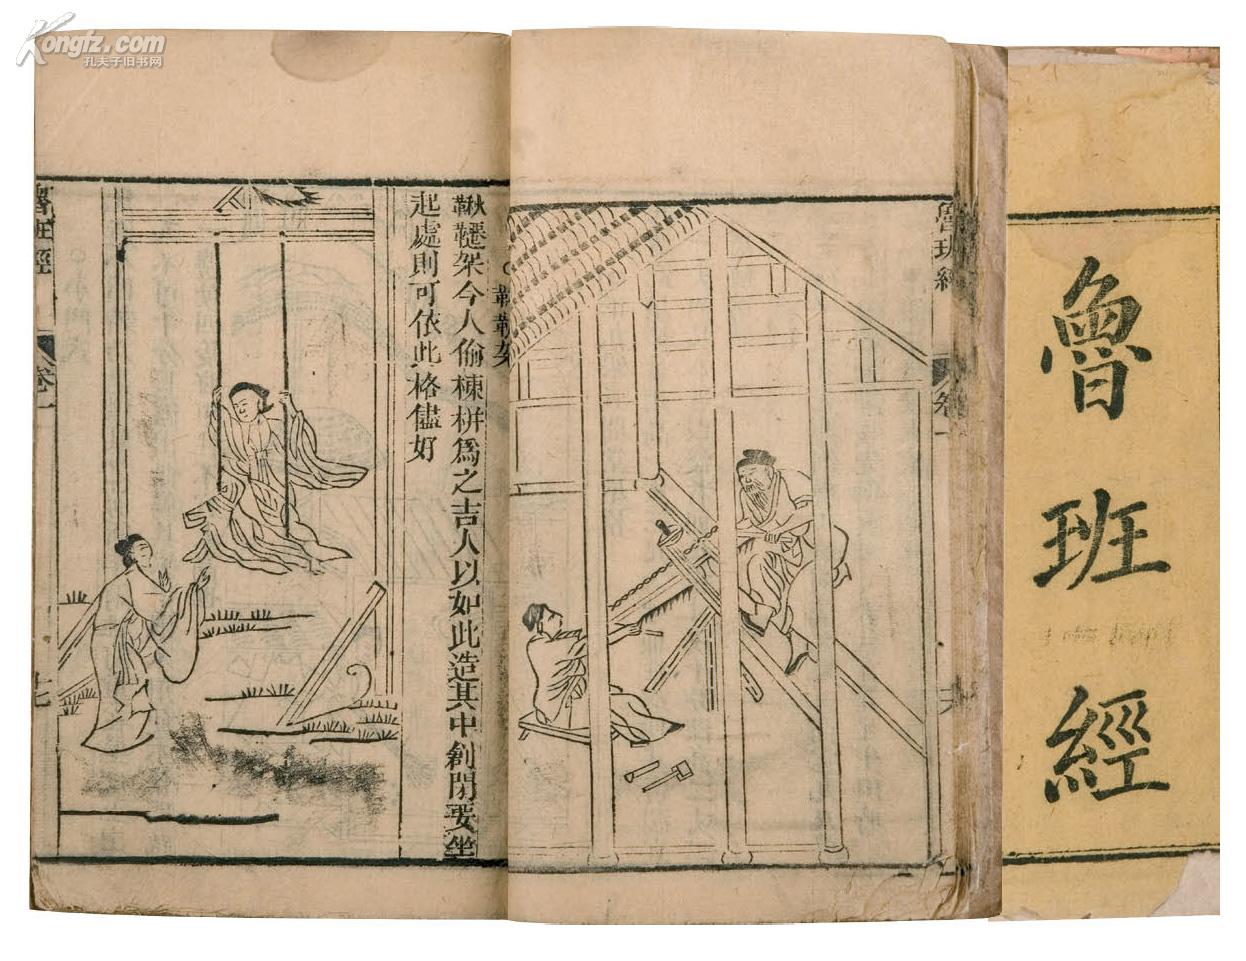 Kongfz.com
孔夫子旧书网
魯班經
魯班經
卷一
十六
鞦韆架
鞦韆架今人偷棟栟爲之吉人以如此造其中創閒要坐
起處則可依此格儘好
魯班經
卷一
十七